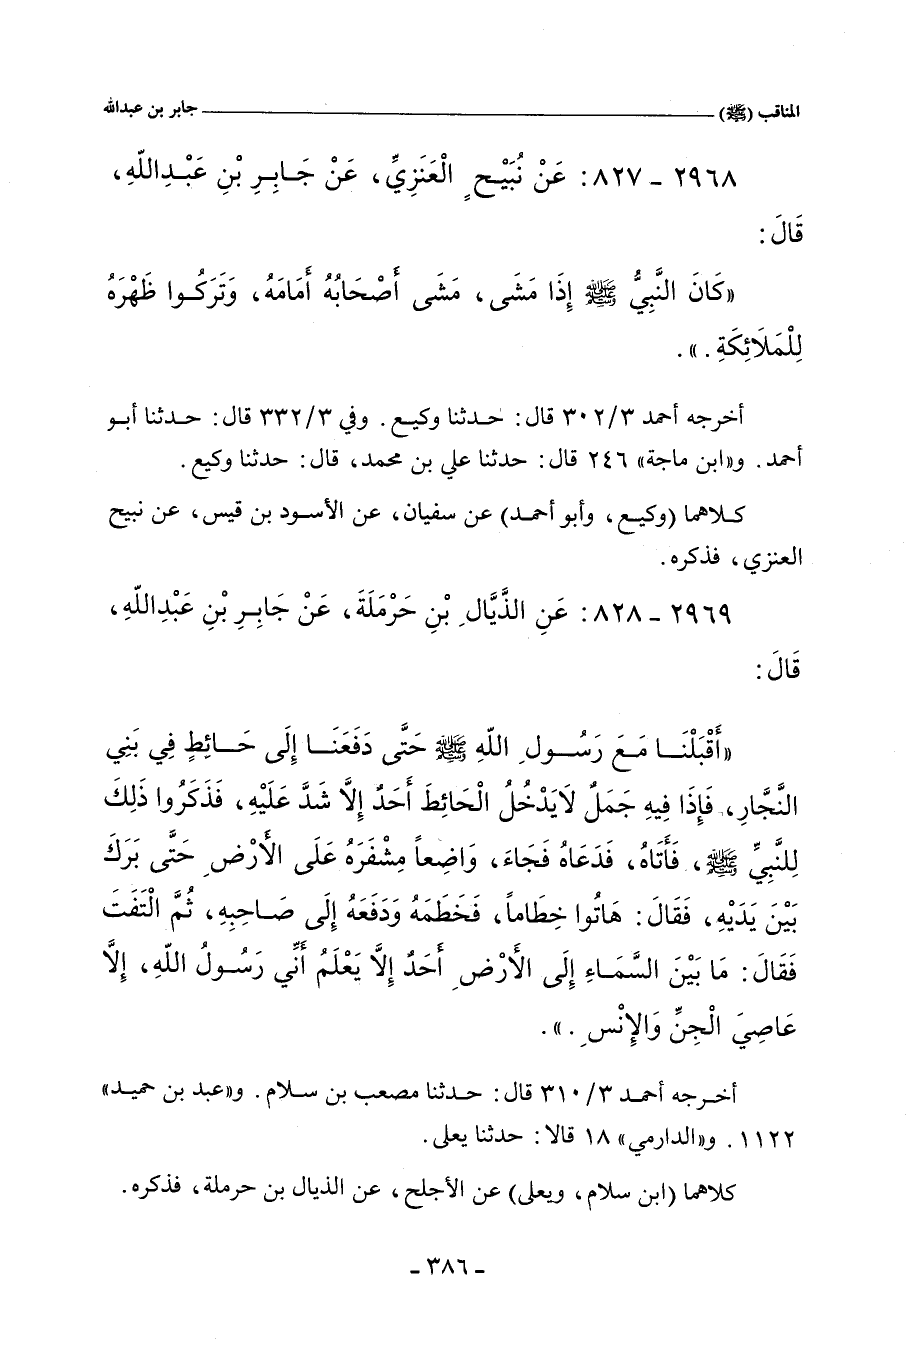 المناقب (ﷺ) ــــــــــــــــــــــــــــــــ جابر بن عبدالله
٢٩٦٨ ـ ٨٢٧: عَنْ نُبَيْحٍ الْعَنَزِيِّ، عَنْ جَابِرِ بْنِ عَبْدِاللّهِ،
قَالَ:
«كَانَ النَّبِيُّ ﷺ إِذَا مَشَى، مَشَى أَصْحَابُهُ أَمَامَهُ، وَتَرَكُوا ظَهْرَهُ
لِلْمَلاَئِكَةِ.».
أخرجه أحمد ٣٠٢/٣ قال: حدثنا وكيع. وفي ٣٣٢/٣ قال: حدثنا أبو
أحمد. و«ابن ماجة» ٢٤٦ قال: حدثنا علي بن محمد، قال: حدثنا وكيع.
كلاهما (وكيع، وأبو أحمد) عن سفيان، عن الأسود بن قيس، عن نبيح
العنزي، فذكره.
٢٩٦٩ ـ ٨٢٨: عَنِ الذَّيَّالِ بْنِ حَرْمَلَةَ، عَنْ جَابِرِ بْنِ عَبْدِاللّهِ،
قَالَ:
«أَقْبَلْنَا مَعَ رَسُولِ اللّهِ ﷺ حَتَّى دَفَعَنَا إِلَى حَائِطٍ فِي بَنِي
النَّجَّارِ، فَإِذَا فِيهِ جَمَلٌ لاَيَدْخُلُ الْحَائِطَ أَحَدٌ إِلاَّ شَدَّ عَلَيْهِ، فَذَكَرُوا ذَلِكَ
لِلنَّبِيِّ ﷺ، فَأَتَاهُ، فَدَعَاهُ فَجَاءَ، وَاضِعاً مِشْفَرَهُ عَلَى الأَرْضِ حَتَّى بَرَكَ
بَيْنَ يَدَيْهِ، فَقَالَ: هَاتُوا خِطَاماً، فَخَطَمَهُ وَدَفَعَهُ إِلَى صَاحِبِهِ، ثُمَّ الْتَفَتَ
فَقَالَ: مَا بَيْنَ السَّمَاءِ إِلَى الأَرْضِ أَحَدٌ إِلاَّ يَعْلَمُ أَنِّي رَسُولُ اللّهِ، إِلاَّ
عَاصِيَ الْجِنِّ وَالإِنْسِ.».
أخرجه أحمد ٣١٠/٣ قال: حدثنا مصعب بن سلام. و«عبد بن حميد»
١١٢٢. و«الدارمي» ١٨ قالا: حدثنا يعلى.
كلاهما (ابن سلام، ويعلى) عن الأجلح، عن الذيال بن حرملة، فذكره.
ـ ٣٨٦ ـ